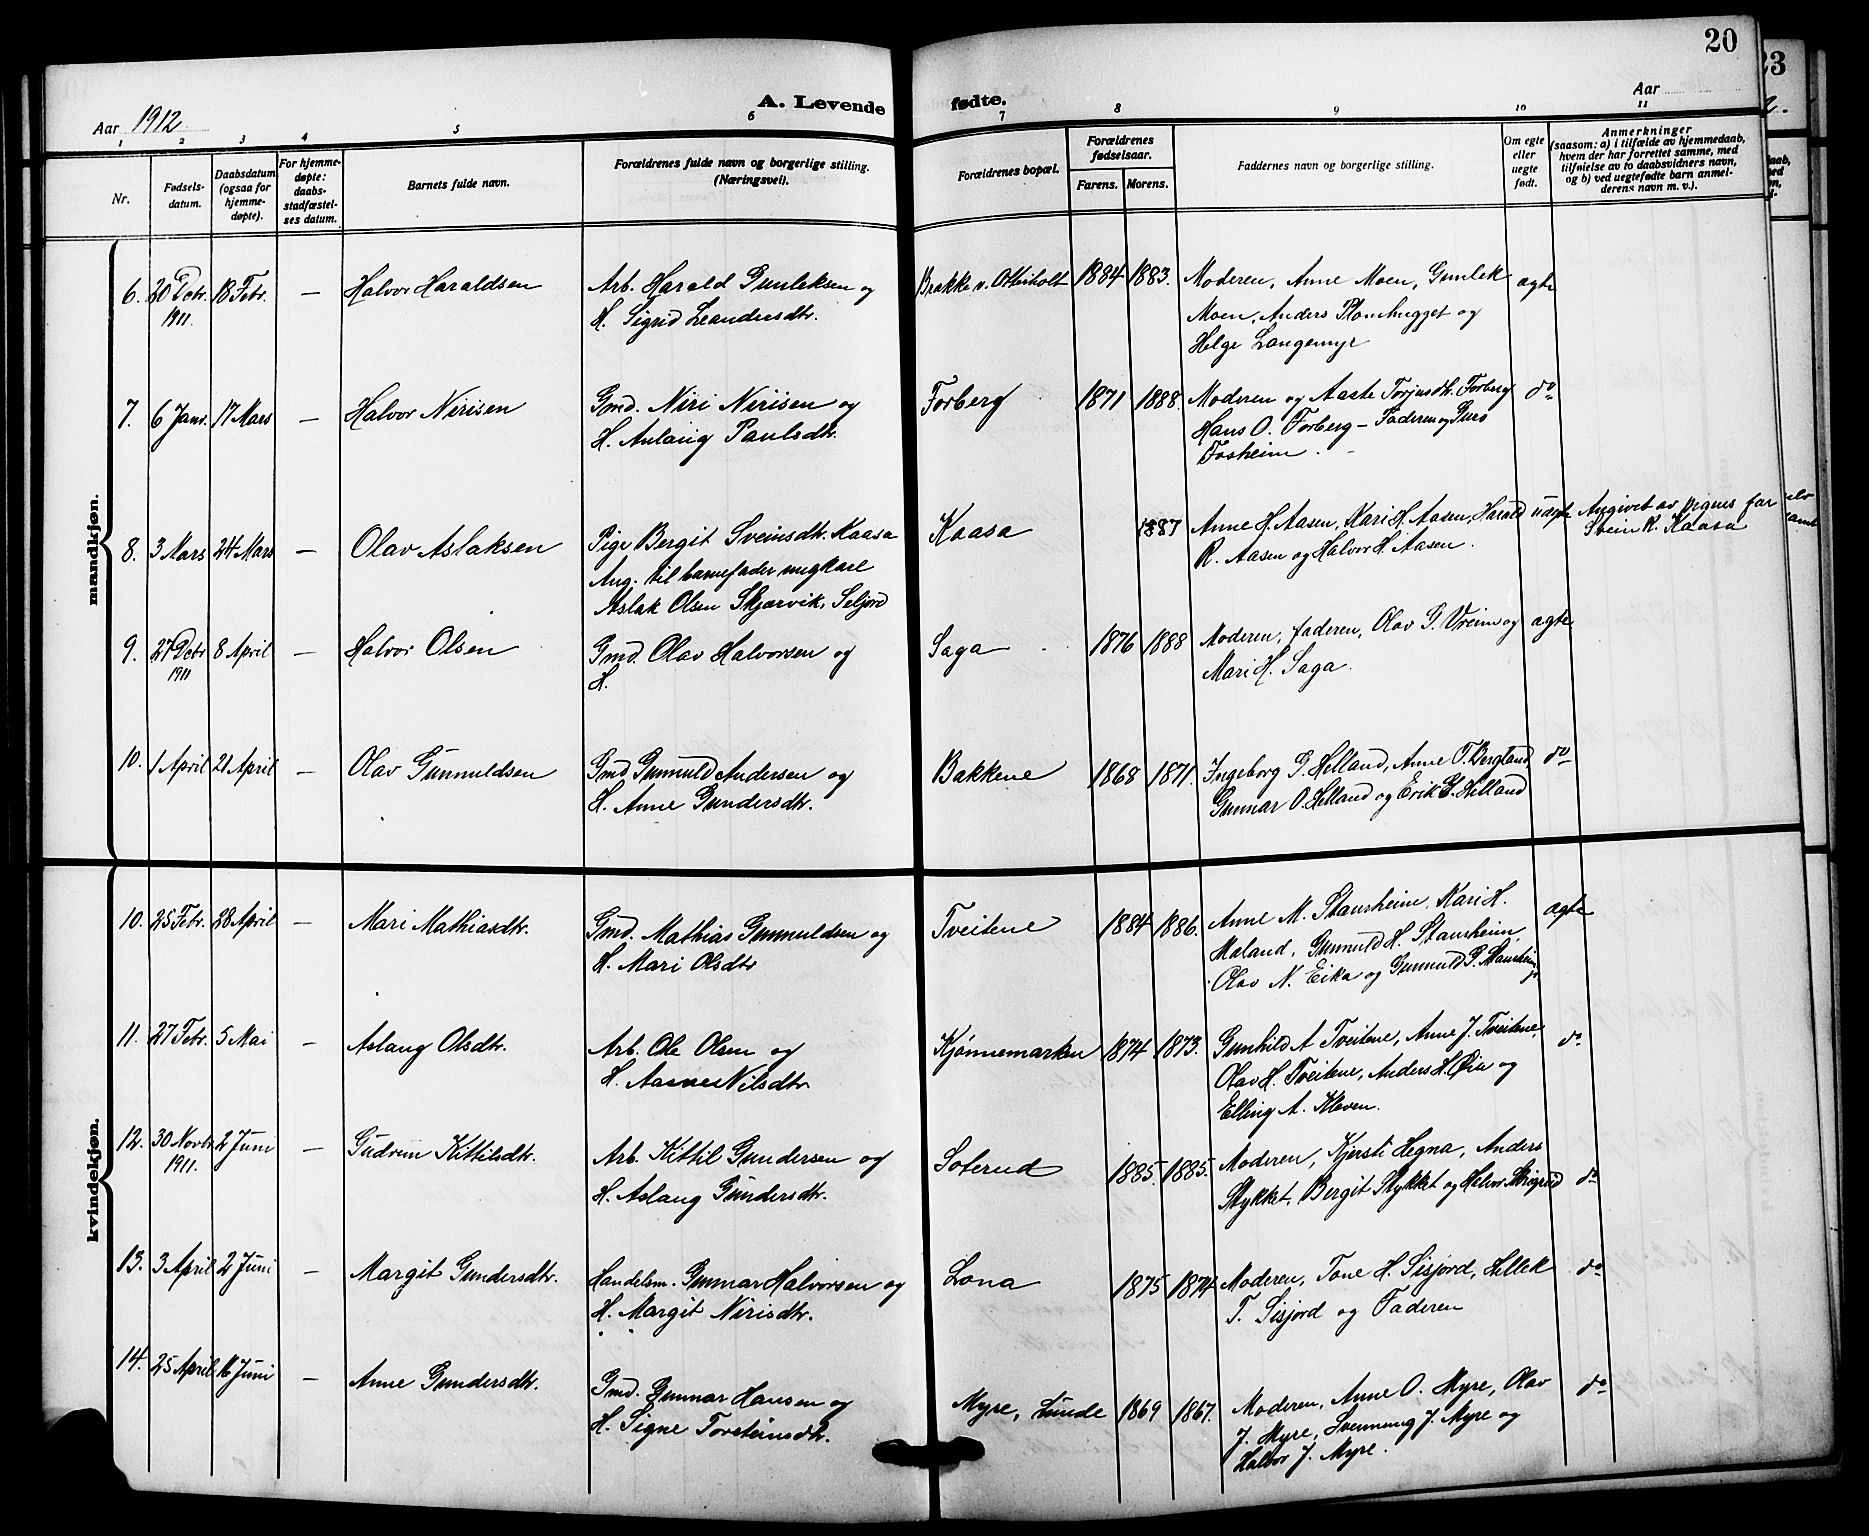 20
23
A. Levende fødte.
Aar 1912
Aar
1 2 3 4 5 6 7 8 9 10 11
Nr.
Fødsels-
datum.
Daabsdatum
(ogsaa for
hjemme-
døpte).
For hjemme-
døpte:
daabs-
stadfæstel-
ses datum.
Barnets fulde navn.
Forældrenes fulde navn og borgerlige stilling.
(Næringsvei).
Forældrenes bopæl.
Forældrenes
fødselsaar.
Farens. Morens.
Faddernes navn og borgerlige stilling.
Om egte
eller
uegte
født.
Anmerkninger
(saasom: a) i tilfælde av hjemmedaab,
hvem der har forrettet samme, med
tilføielse av to daabsvidners navn,
og b) ved uegtefødte barn anmel-
derens navn m. v.).
mandkjøn.
6. 20 Dcbr. 18 Febr. — Halvor Haraldsen Arb. Harald Gunleksen og Brække v. Otterholt 1884 1883. Moderen, Anne Moen, Gunlek ægte
1911. H. Sigrid Leandersdtr. Moen, Anders Plomhugget og
Helge Langemyr
7. 6 Janr. 17 Mars — Halvor Nirisen Gmd. Niri Nirisen og Forberg 1871 1888. Moderen og Aaste Torjusdtr. Forberg do
H. Anlaug Paulsdtr. Hans O. Forberg – Faderen og Guro
Fosheim.
8. 3 Mars 24 Mars — Olav Aslaksen Pige Bergit Sveinsdtr. Kaasa Kaasa 1887 Anne H. Aasen, Kari H. Aasen, Harald uægte Angivet av pigens far
Ang. til barnefader ungkare R. Aasen og Halvor H. Aasen. Svein R. Kaasa
Aslak Olsen Skjærvik, Seljord
9. 27 Dcbr 8 April — Halvor Olsen Gmd. Olav Halvorsen og Saga 1876 1888 Moderen, faderen, Olav G. Vreim og ægte
1911 H. Mari H. Saga.
10. 1 April 21 April — Olav Gunnuldsen Gmd Gunnuld Andersen og Bakkene 1868 1871. Ingeborg G. Helland, Anne T. Bergland do
H. Anne Gundersdtr. Gunnar O. Helland og Erik G. Helland
kvindekjøn.
10. 25 Febr. 28 April — Mari Mathiasdtr. Gmd. Mathias Gunnuldsen og Tveitene 1884 1886. Anne M. Stansheim, Kari H. ægte
H. Mari Olsdtr Haland, Gunnuld H. Stansheim,
Olav N. Eika og Gunnuld G. Stansheim
11. 27 Febr. 5 Mai — Aslaug Olsdtr. Arb. Ole Olsen og Kjønnemarken 1874 1873. Gunhild A Tveitene, Anne J. Tveitene, do
H. Aasne Nilsdtr Olav H. Tveitene, Anders H. Øia og
Elling A. Kleven.
12. 30 Novbr 2 Juni — Gudrun Kittilsdtr. Arb. Kittil Gundersen og Soterud 1885. 1885. Moderen, Kjersti Hegna, Anders do
1911. H. Aslaug Gundersdtr. Stykket, Bergit Stykket og Halvor
13. 3 April 2 Juni — Margit Gundersdtr. Handelsm. Gunnar Halvorsen og Lona 1875 1874 Moderen, Tone H. Sisjord, Hellek do
H. Margit Nirisdtr. T. Sisjord og Faderen
14. 25 April 16 Juni — Anne Gundersdtr. Gmd. Gunnar Hansen og Myre, Lunde 1869 1867. Moderen, Anne O. Myre, Olav do
H. Signe Torsteinsdtr. J. Myre, Svennung J. Myre og
Halvor J. Myre.